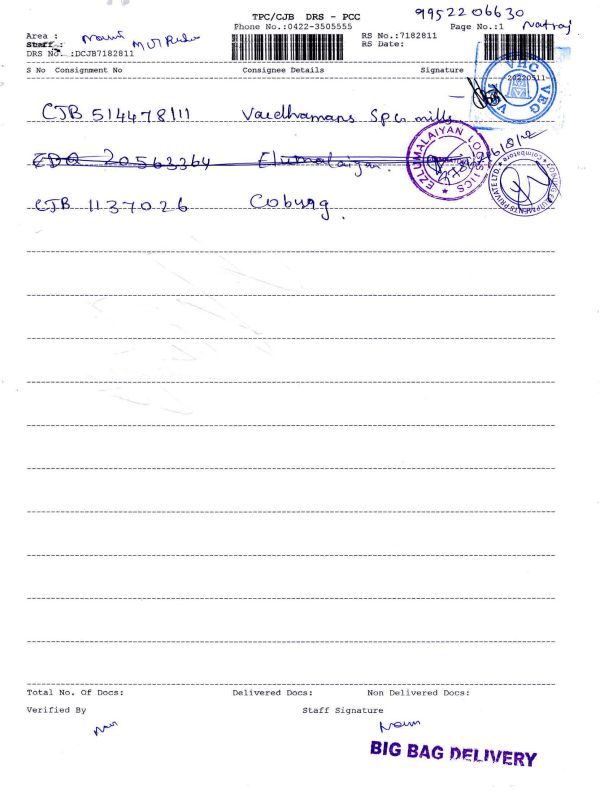 9952206630
TPC/CJB DRS - PCC
Natraj
Phone No.:0422-3505555 Page No.:1
Area :
RS No.:7182811
Staff :
RS Date:
DRS No. :DCJB7182811
S No Consignment No Consignee Details Signature 20220511
VHC VEG
CJB 514478111 Vardhamans Spg mills
EZLUMALAIYAN LOGISTICS
EDQ 20563364 Elumalaiyan.
PRIVATE LTD. Coimbatore
CJB 1137026 Coburg.
Total No. Of Docs: Delivered Docs: Non Delivered Docs:
Verified By Staff Signature
BIG BAG DELIVERY